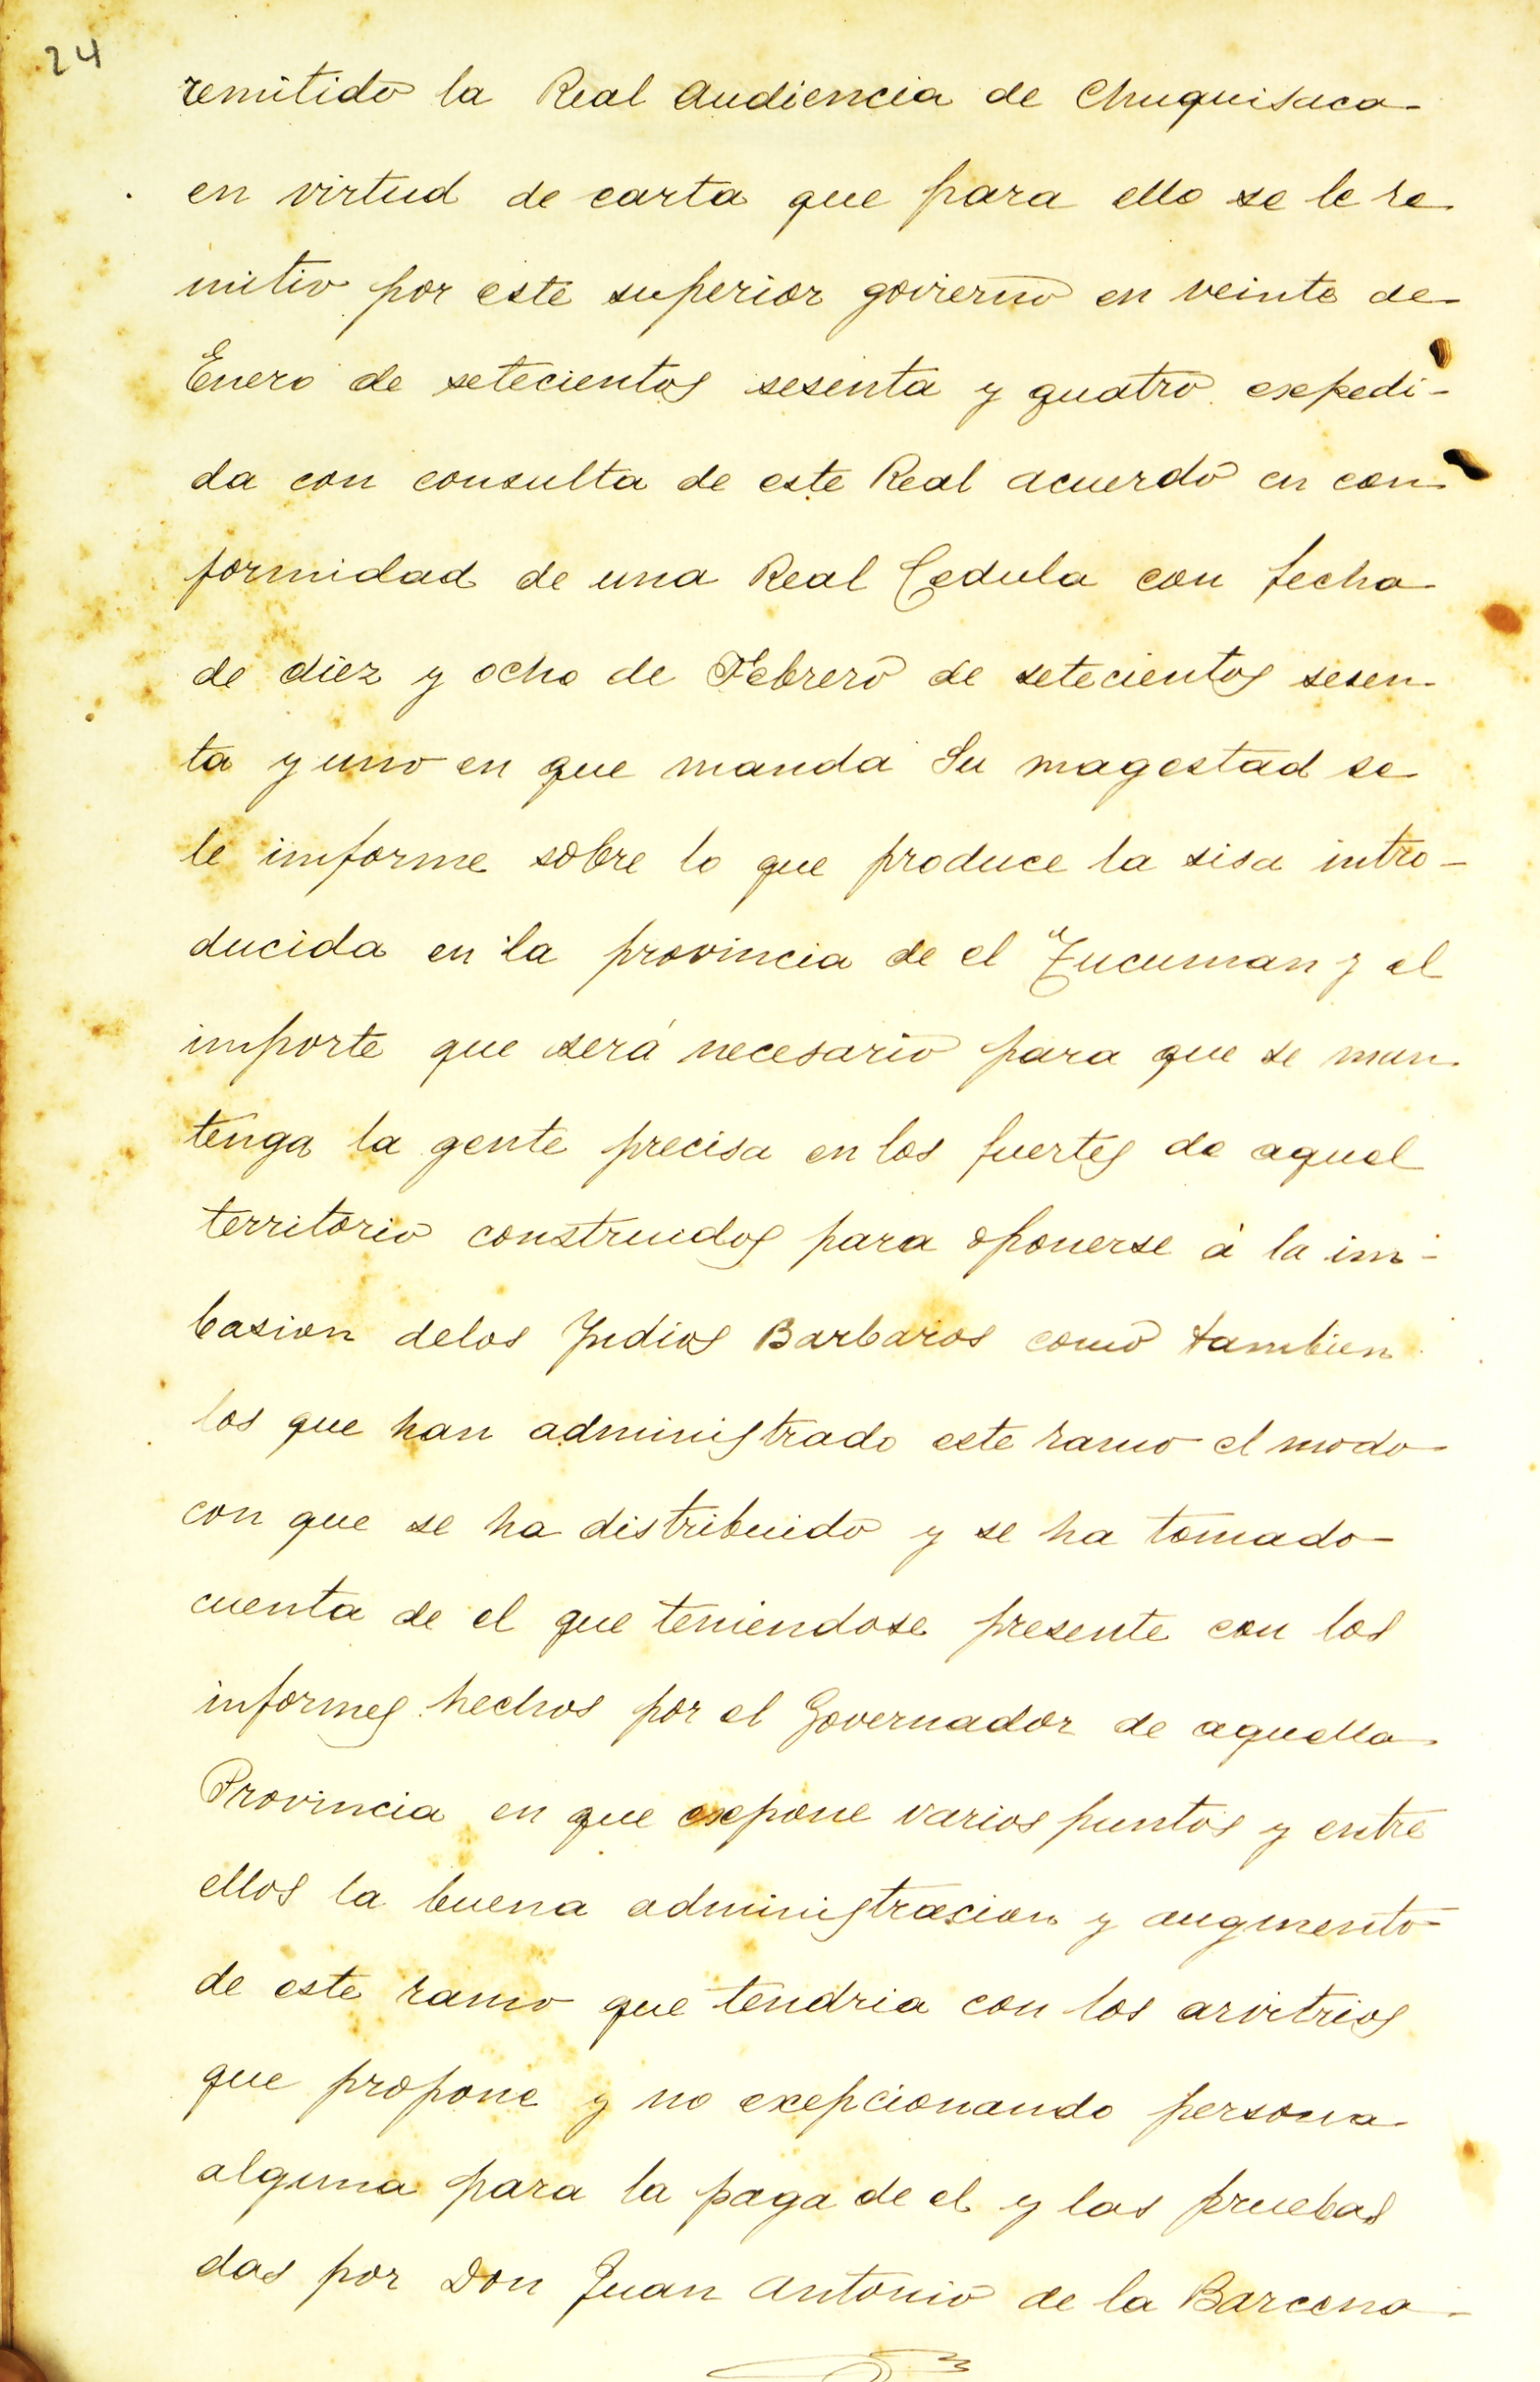 24
remitido la Real Audiencia de Chuquisaca
en virtud de carta que para ello se le re
mitio por este superior govierno en veinte de
Enero de setecientos sesenta y quatro expedi-
da con consulta de este Real acuerdo en con
formidad de una Real Cedula con fecha
de diez y ocho de Febrero de setecientos sesen
ta y uno en que manda Su magestad se
le imforme sobre lo que produce la sisa intro-
ducida en la provincia de el Tucuman y el
importe que será necesario para que se man
tenga la gente precisa en los fuertes de aquel
territorio construidos para oponerse á la im-
basion delos Indios Barbaros como tambien
los que han administrado este ramo el modo
con que se ha distribuido y se ha tomado
cuenta de el que teniendose presente con los
informes hechos por el Governador de aquella
Provincia en que expone varios puntos y entre
ellos la buena administracion y augmento
de este ramo que tendria con los arvitrios
que propone y no exepcionando persona
alguna para la paga de el y las pruebas
das por Don Juan Antonio de la Barcena